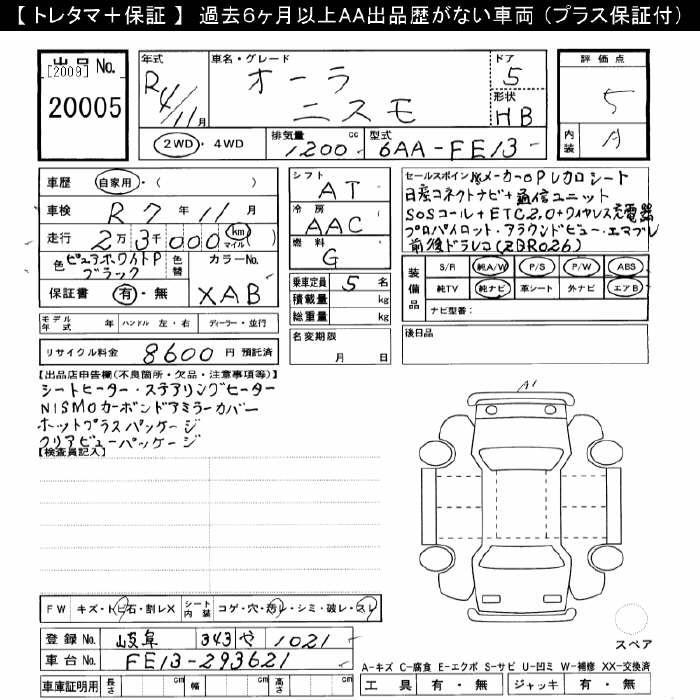 【 トレタマ＋保証 】 過去6ヶ月以上AA出品歴がない車両（プラス保証付）
出品 No.
[2009]
20005
年式
R4/11月
車名・グレード
オーラ
ニスモ
ドア
5
形状
HB
2WD・4WD
排気量
1200 cc
型式
6AA-FE13
評価点
5
内装
A
車歴 自家用・( )
車検 R 7 年 11 月
走行 2万 3千 000 km マイル
色 ピュアホワイトP
ブラック
色替
カラーNo.
XAB
保証書 有・無
シフト
AT
冷房
AAC
燃料
G
乗車定員 5 名
積載量 kg
総重量 kg
名変期限
月 日
セールスポイント メーカーOPレカロシート
日産コネクトナビ+通信ユニット
SOSコール+ETC2.0+ワイヤレス充電器
プロパイロット・アラウンドビュー・エマブレ
前後ドラレコ(ZBR026)
装備品
S/R 純A/W P/S P/W ABS
純TV 純ナビ 革シート 外ナビ エアB
ナビ型番:
モデル年式 年 ハンドル 左・右 ディーラー・並行
リサイクル料金 8600 円 預託済
後日品
【出品店申告欄(不良箇所・欠品・注意事項等)】
シートヒーター・ステアリングヒーター
NISMOカーボンドアミラーカバー
ホットプラスパッケージ
クリアビューパッケージ
【検査員記入】
A1
FW キズ・トビ石・割レX
シート内装 コゲ・穴・汚レ・シミ・破レ・スレ
登録 No. 岐阜 343 や 1021
車台 No. FE13-293621
車庫証明用 長さ cm 幅 cm 高さ cm
スペア
A-キズ C-腐食 E-エクボ S-サビ U-凹ミ W-補修 XX-交換済
工具 有・無 ジャッキ 有・無